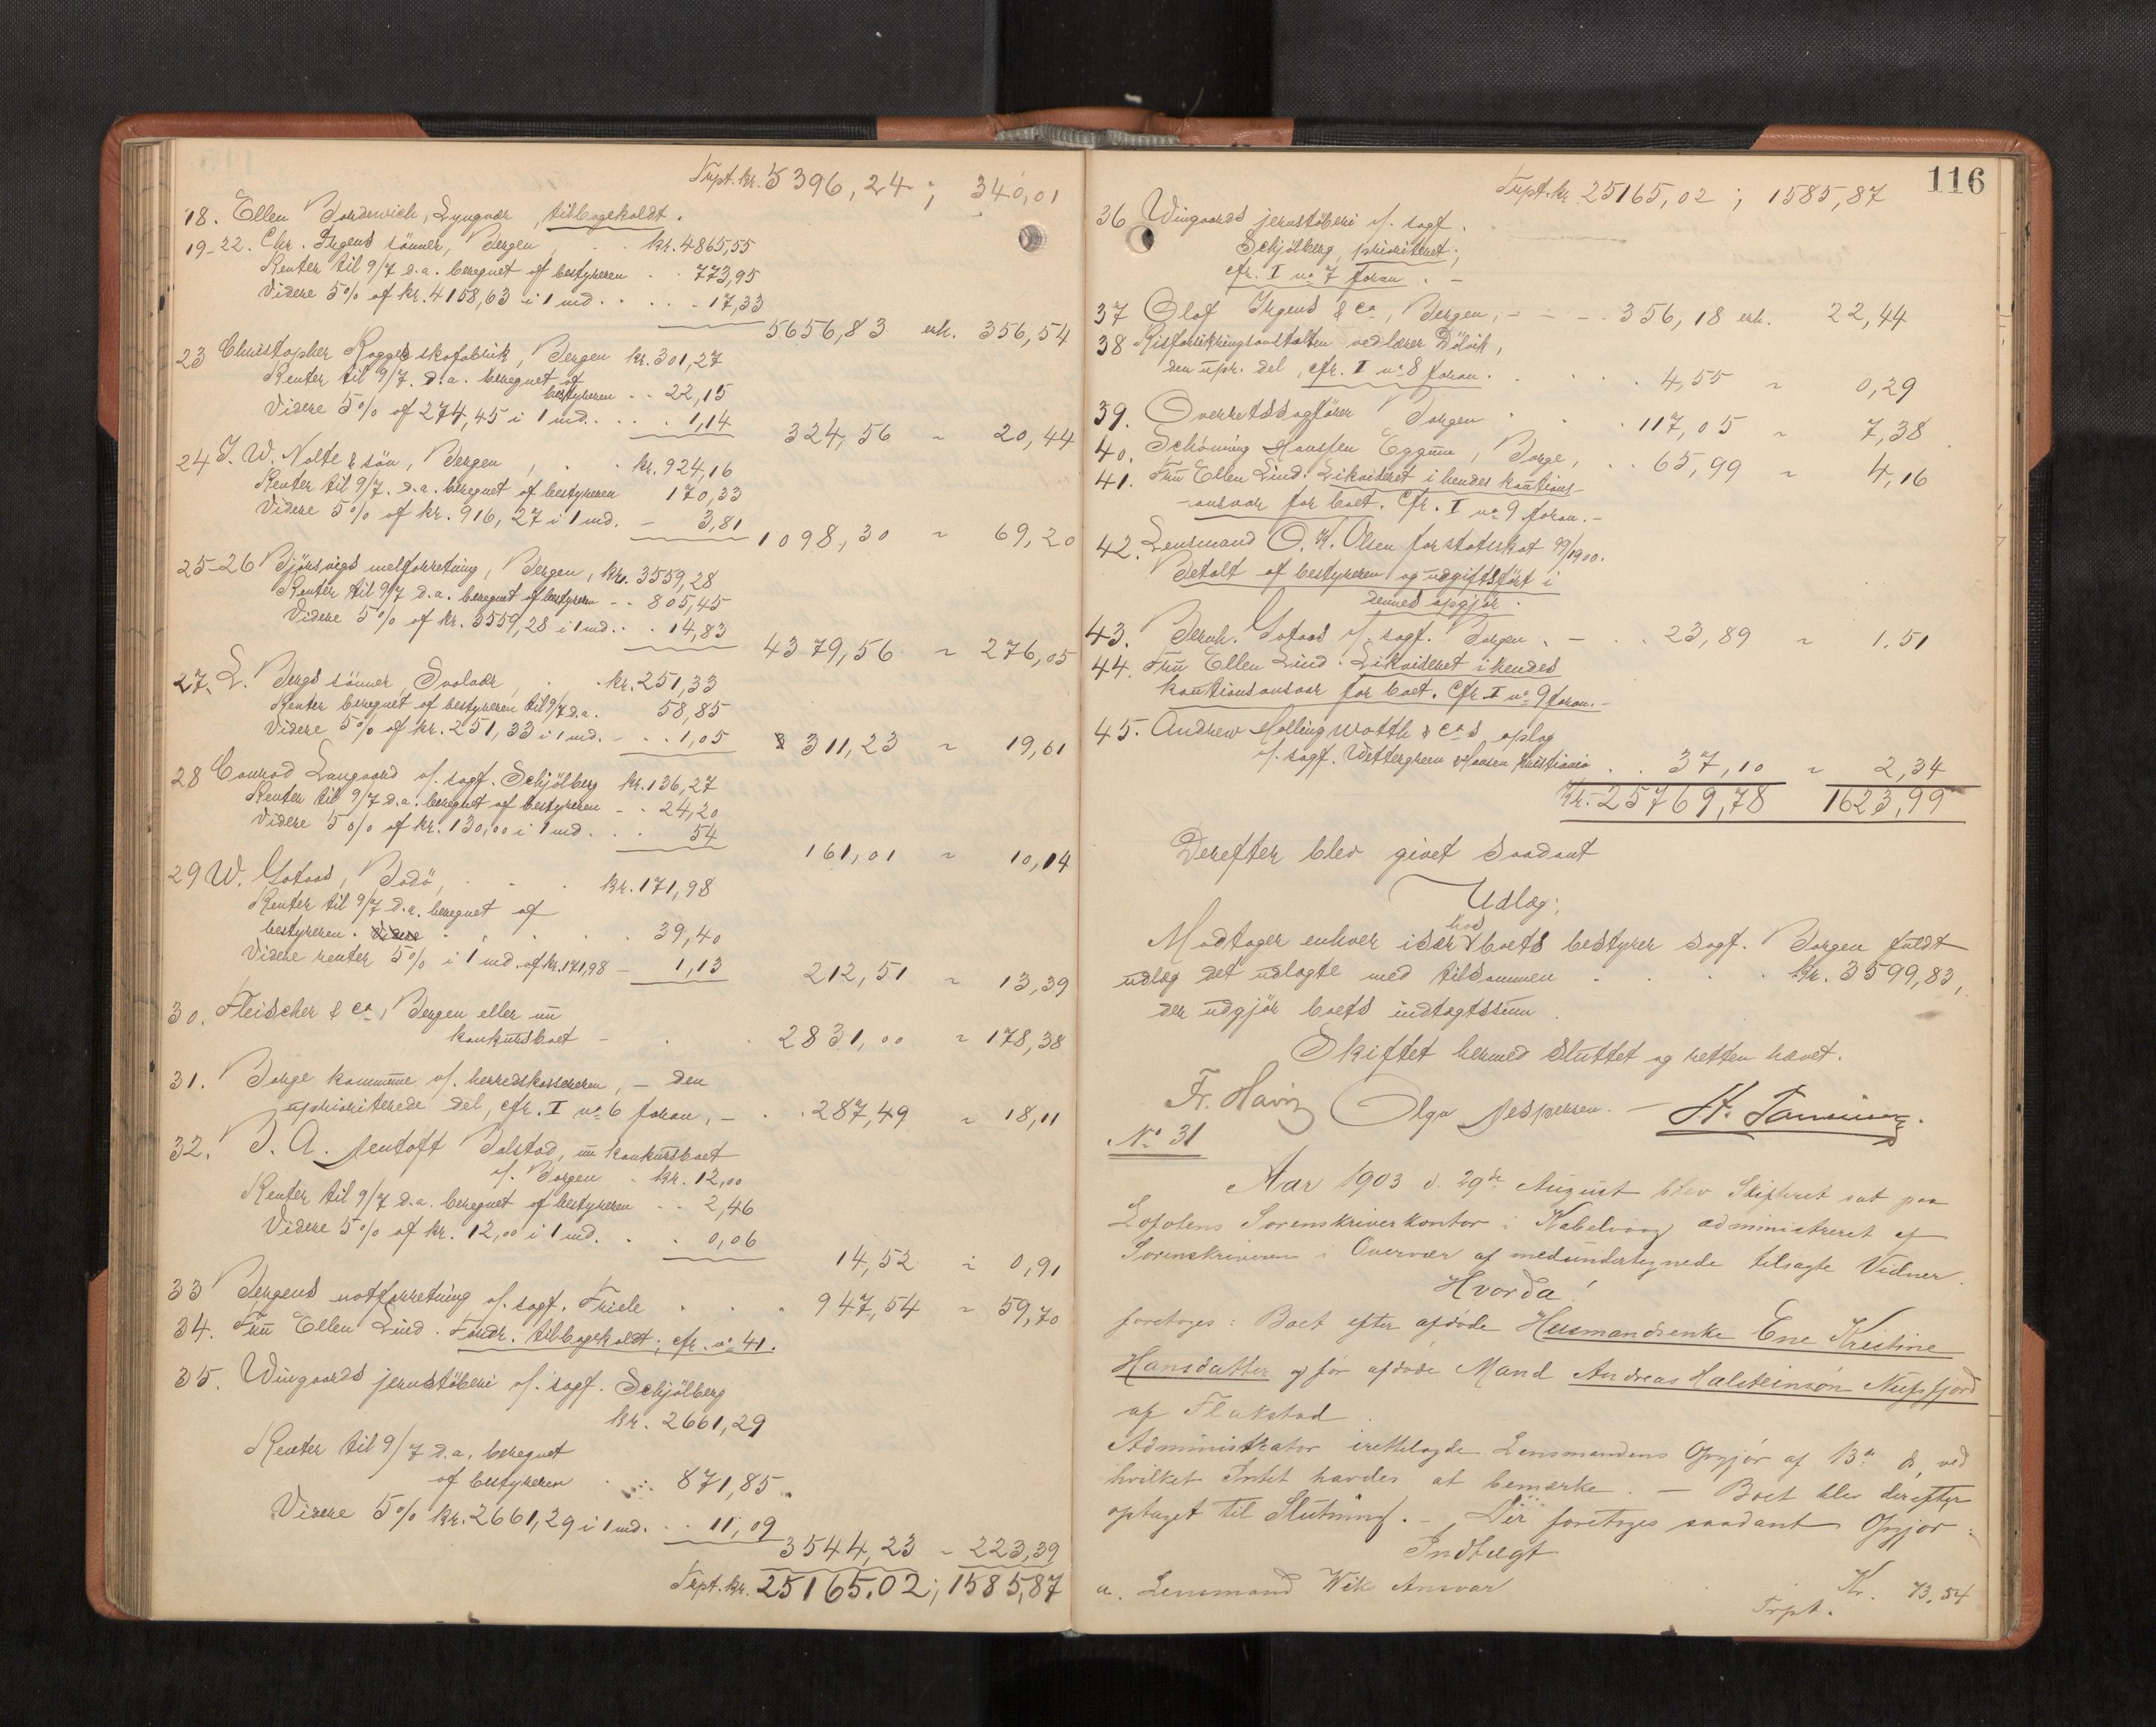 Trpt. kr. 5396,24; 340,01
18. Ellen Bordewich, Lyngvær, tilbagekaldt.
19-22. Chr. Irgens sønner, Bergen, kr. 4865,55
Renter til 9/7 d.a. beregnet af bestyreren . . 773,95
Videre 5% af kr. 4158,63 i 1 md. . . . . 17,33
5656,83 erh. 356,54
23 Christopher Rogges skofabrik, Bergen kr. 301,27
Renter til 9/7. d.a. beregnet af
bestyreren . . 22,15
Videre 5% af 274,45 i 1 md. . . . 1,14
324,56 " 20,44
24 J. W. Nolte & søn, Bergen, . . kr. 924,16
Renter til 9/7. d.a. beregnet af bestyreren 170,33
Videre 5% af kr. 916,27 i 1 md. - 3,81
1098,30 " 69,20
25-26 Bjørsvigs melforretning, Bergen, kr. 3559,28
Renter til 9/7 d.a. beregnet af bestyreren - - 805,45
Videre 5% af kr. 3559,28 i 1 md. . . 14,83
4379,56 " 276,05
27. L. Bergs sønner, Svolvær, . . kr. 251,33
Renter beregnet af bestyreren til 9/7 d.a. 58,85
Videre 5% af kr. 251,33 i 1 md. - . . 1,05
311,23 " 19,61
28 Conrad Langaard v/. sagf. Schjølberg kr. 136,27
Renter til 9/7 d.a. beregnet af bestyreren - . . 24,20
Videre 5% af kr. 130,00 i 1 md. . . . 54
161,01 " 10,14
29 W. Gotaas, Bodø, . . . kr. 171,98
Renter til 9/7 d.a. beregnet af
bestyreren. Videre . . . . . 39,40
Videre renter 5% i 1 md. af kr. 171,98 - 1,13
212,51 " 13,39
30. Fleischer & co, Bergen eller nu
konkursboet - . . 2831,00 " 178,38
31. Borge kommune v/. herredskassereren, - den
uprioriterede del, cfr. I no 6 foran, - . . 287,49 " 18,11
32. J. A. Jentoft Bolstad, nu konkursboet
v/. Borgen . kr. 12,00
Renter til 9/7 d.a. beregnet af bestyreren . . 2,46
Videre 5% af kr. 12,00 i 1 md. . . 0,06
14,52 " 0,91
33 Bergens notforretning v/. sagf. Friele . . . 947,54 " 59,70
34. Fru Ellen Lind. Fordr. tilbagekaldt; cfr. no 41.
35. Wingaards jernstøberi v/. sagf. Schjølberg
kr. 2661,29
Renter til 9/7 d.a. beregnet
af bestyreren . . 871,85
Videre 5% kr. 2661,29 i 1 md. . . 11,09
3544,23 " 223,39
Trpt. kr. 25165,02; 1585,87
116
Trpt. kr. 25165,02; 1585,87
36 Wingaards jernstøberi v/. sagf.
Schjølberg, prioriteret;
cfr. I no 7 foran. -
37 Olaf Irgens & co, Bergen, - - - . 356,18 erh. 22,44
38 Risforsikringsanstalten ved lærer Dölvik,
den upr. del, cfr. I no 8 foran. . . . . 4,55 " 0,29
39. Overretssagfører Borgen . . . 117,05 " 7,38
40. Schöning Hanssen Eggum, Borge, . . 65,99 " 4,16
41. Fru Ellen Lind: Likvideret i hendes kautions-
-ansvar for boet. Cfr. I no 9 foran. -
42. Lensmand O. K. Olsen for statsskat 99/1900.
Betalt af bestyreren og udgiftsført i
dennes opgjør.
43. Bernh. Gotaas v/. sagf. Borgen. - . . 23,89 " 1.51
44. Fru Ellen Lind: Likvideret i hendes
kautionsansvar for boet. Cfr. I no 9 foran. -
45. Andrew Hollingworth & co s oplag
v/. sagf. Wettergreen & Hansen Kristiania . . 37,10 " 2,34
Kr. 25769,78 1623,99
Derefter blev givet saadant
Udlæg;
Modtager enhver især hos boets bestyrer sagf. Borgen fuldt
udlæg det udlagte med tilsammen . . . . kr. 3599,83,
der udgjør boets indtægtssum.
Skiftet hermed sluttet og retten hævet.
Olga Jespersen. -
No 31
Aar 1903 d. 29de August blev Skifteret sat paa
Lofotens Sorenskriverkontor i Kabelvaag administreret af
Sorenskriveren i Overvær af medundertegnede tilsagte Vidner.
Hvorda!
foretoges: Boet efter afdøde Husmandsenke Ene Kristine
Hansdatter og før afdøde Mand Andreas Halsteinsøn Nufsfjord
af Flakstad.
Administrator irettelagde Lensmandens Opgjør af 13de ds, ved
hvilket Intet havdes at bemærke. - Boet blev derefter
optaget til Slutning. - Der foretoges saadant Opgjør:
Indtægt
a. Lensmand Wiks Ansvar Kr. 73,54
Trpt.